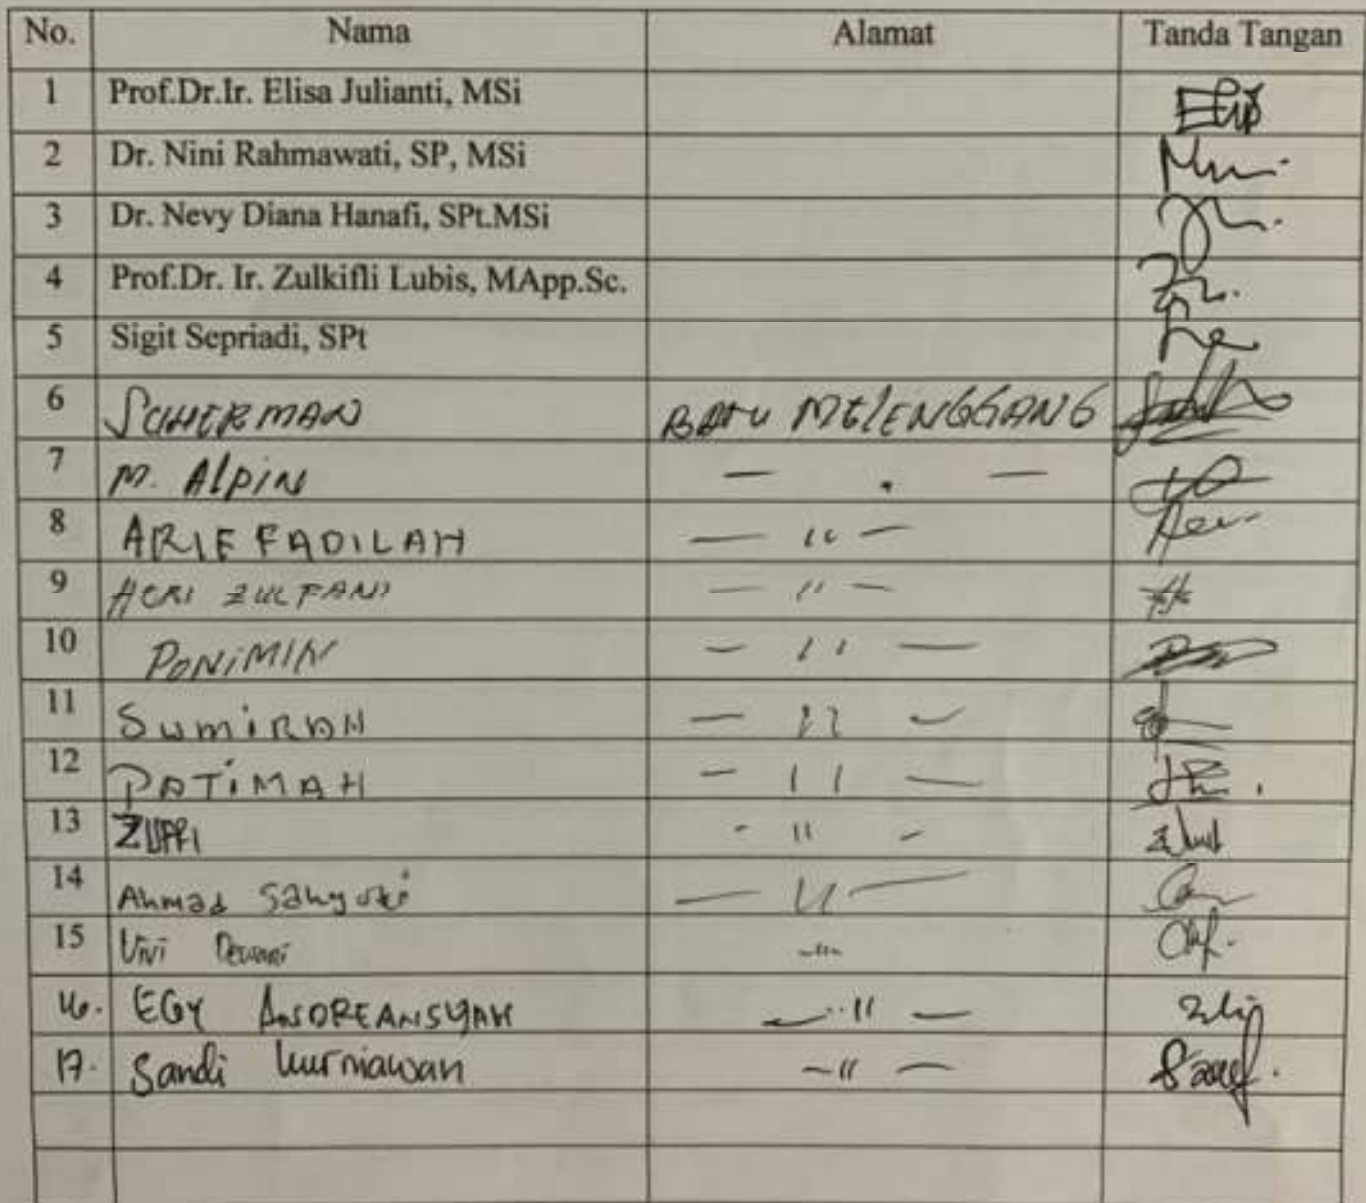 No. Nama Alamat Tanda Tangan
1 Prof.Dr.Ir. Elisa Julianti, MSi
2 Dr. Nini Rahmawati, SP, MSi
3 Dr. Nevy Diana Hanafi, SPt.MSi
4 Prof.Dr. Ir. Zulkifli Lubis, MApp.Sc.
5 Sigit Sepriadi, SPt
6 SUHERMAN BATU MELENGGANG
7 M. AlPiN — . —
8 ARIE FADILAH — 11 —
9 ZULFANI — 11 —
10 PONiMIN — 11 —
11 SumiRAH — 11 —
12 PATiMAH — 11 —
13 - 11 -
14 Ahmad — 11 —
15 Vivi - 11 -
16. EGY ANDREANSYAH — 11 —
17. Sandi kurniawan — 11 —